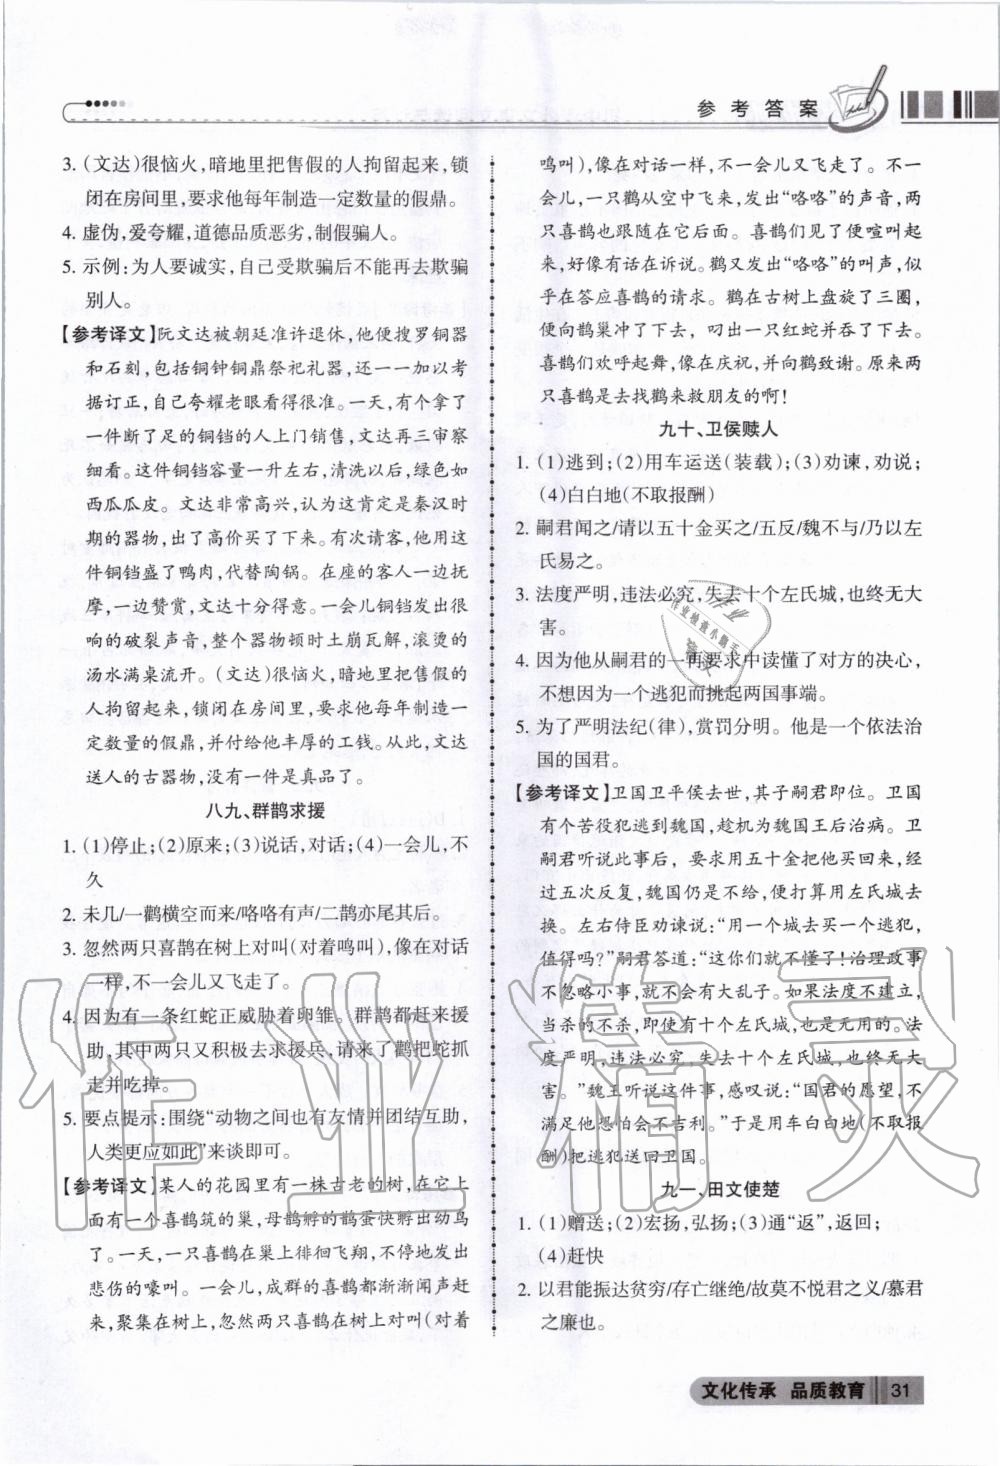 参考答案
3. (文达)很恼火,暗地里把售假的人拘留起来,锁
闭在房间里,要求他每年制造一定数量的假鼎。
4. 虚伪,爱夸耀,道德品质恶劣,制假骗人。
5. 示例:为人要诚实,自己受欺骗后不能再去欺骗
别人。
【参考译文】阮文达被朝廷准许退休,他便搜罗铜器
和石刻,包括铜钟铜鼎祭祀礼器,还加以考
据订正,自己夸耀老眼看得很准。一天,有个拿了
一件断了足的铜铛的人上门销售,文达再三审察
细看。这件铜铛容量一升左右,清洗以后,绿色如
西瓜瓜皮。文达非常高兴,认为这肯定是秦汉时
期的器物,出了高价买了下来。有次请客,他用这
件铜铛盛了鸭肉,代替陶锅。在座的客人一边抚
摩,一边赞赏,文达十分得意。一会儿铜铛发出很
响的破裂声音,整个器物顿时土崩瓦解,滚烫的
汤水满桌流开。(文达)很恼火,暗地里把售假的
人拘留起来,锁闭在房间里,要求他每年制造一
定数量的假鼎,并付给他丰厚的工钱。从此,文达
送人的古器物,没有一件是真品了。
八九、群鹊求援
1. (1)停止;(2)原来;(3)说话,对话;(4)一会儿,不
久
2. 未几/一鹳横空而来/咯咯有声/二鹊亦尾其后。
3. 忽然两只喜鹊在树上对叫(对着鸣叫),像在对话
一样,不一会儿又飞走了。
4. 因为有一条红蛇正威胁着卵雏。群鹊都赶来援
助,其中两只又积极去求援兵,请来了鹳把蛇抓
走并吃掉。
5. 要点提示:围绕“动物之间也有友情并团结互助,
人类更应如此”来谈即可。
【参考译文】某人的花园里有一株古老的树,在它上
面有一个喜鹊筑的巢,母鹊孵的鹊蛋快孵出幼鸟
了。一天,一只喜鹊在巢上徘徊飞翔,不停地发出
悲伤的嚎叫。一会儿,成群的喜鹊都渐渐闻声赶
来,聚集在树上,忽然两只喜鹊在树上对叫(对着
鸣叫),像在对话一样,不一会儿又飞走了。不一
会儿,一只鹳从空中飞来,发出“咯咯”的声音,两
只喜鹊也跟随在它后面。喜鹊们见了便喧叫起
来,好像有话在诉说。鹳又发出“咯咯”的叫声,似
乎在答应喜鹊的请求。鹳在古树上盘旋了三圈,
便向鹊巢冲了下去, 叼出一只红蛇并吞了下去。
喜鹊们欢呼起舞,像在庆祝,并向鹳致谢。原来两
只喜鹊是去找鹳来救朋友的啊!
九十、卫侯赎人
1. (1)逃到;(2)用车运送(装载);(3)劝谏,劝说;
(4)白白地(不取报酬)
2. 嗣君闻之/请以五十金买之/五反/魏不与/乃以左
氏易之。
3. 法度严明,违法必究,失去十个左氏城,也终无大
害。
4. 因为他从嗣君的一再要求中读懂了对方的决心,
不想因为一个逃犯而挑起两国事端。
5. 为了严明法纪(律),赏罚分明。他是一个依法治
国的国君。
【参考译文】卫国卫平侯去世,其子嗣君即位。卫国
有个苦役犯逃到魏国,趁机为魏国王后治病。卫
嗣君听说此事后, 要求用五十金把他买回来,经
过五次反复,魏国仍是不给,便打算用左氏城交
换。左右侍臣劝谏说:“用一个城去买一个逃犯,
值得吗?”嗣君答道:“这你们就不懂了!治理政事
不忽略小事,就不会有大乱子。如果法度不建立,
当杀的不杀,即使有十个左氏城,也是没用的。法
度严明,违法必究,失去十个左氏城,也终无大
害。”魏王听说这件事,感叹说:“国君的愿望,不
满足他恐怕会不吉利。”于是用车白白地(不取报
酬)把逃犯送回卫国。
九一、田文使楚
1. (1)赠送;(2)宏扬,弘扬;(3)通“返”,返回;
(4)赶快
2. 以君能振达贫穷/存亡继绝/故莫不悦君之义/慕君
之廉也。
作业精灵
文化传承 品质教育 31